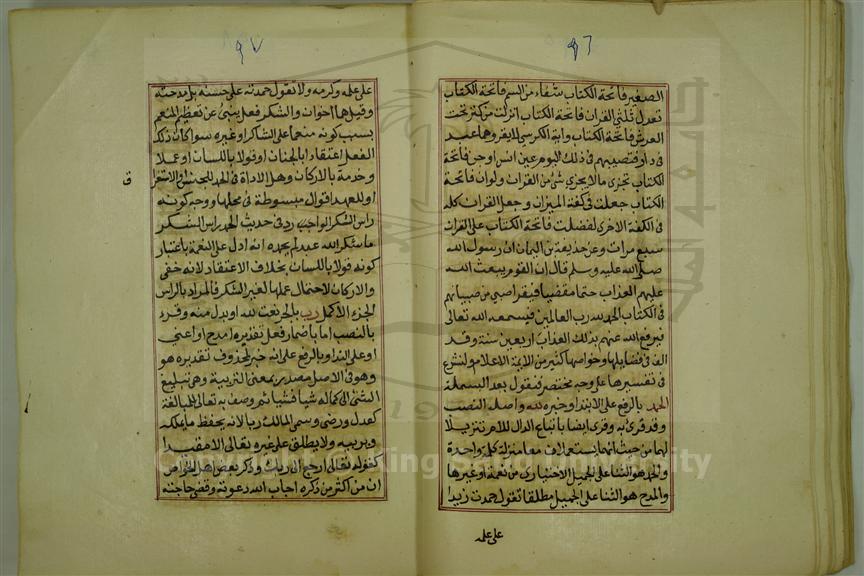 ٩٦
الصغير فاتحة الكتاب شفاء من السم فاتحة الكتاب
تعدل ثلثي القران فاتحة الكتاب انزلت من كنز تحت
العرش فاتحة الكتاب واية الكرسي لا يقروهما عبد
في دار فتصيبهم في ذلك اليوم عين انس او جن فاتحة
الكتاب تجزى ما لا يجزى شئ من القران ولو ان فاتحة
الكتاب جعلت في كفة الميزان وجعل القران كله
في الكفة الاخرى لفضلت فاتحة الكتاب على القران
سبع مرات وعن حذيفة بن اليمان ان رسول الله
صلى الله عليه وسلم قال ان القوم يبعث الله
عليهم العذاب حتما مقضيا فيقرا صبي من صبيانهم
في الكتاب الحمد لله رب العالمين فيسمعه الله تعالى
فيرفع الله عنهم بذلك العذاب اربعين سنة وقد
الف في فضايلها وخواصها كثير من الايمة الاعلام ولنشرع
في تفسيرها على وجه مختصر فنقول بعد البسملة
الحمد بالرفع على الابتدا وخبره لله واصله النصب
وقد قرئ به وقرى ايضا باتباع الدال للام تنزيلا
لهما من حيث انهما يستعملان معا منزلة كلمة واحدة
والحمد هو الثنا على الجميل الاختيارى من نعمة او غيرها
والمدح هو الثنا على الجميل مطلقا تقول حمدت زيدا
على علمه
٩٧
على علمه وكرمه ولا تقول حمدته على حسنه بل مدحته
وقيل هما اخوان والشكر فعل ينبئ عن تعظيم المنعم
بسبب كونه منعما على الشاكر او غيره سوا كان ذلك
الفعل اعتقادا بالجنان او قولا باللسان او عملا
وخدمة بالاركان وهل الاداة في الحمد للجنس او الاستغرا
ق
او للعهد اقوال مبسوطة في محلها ووجه كونه
راس الشكر الواجب رد في حديث الحمد راس الشكر
ما شكر الله عبد لم يحمده انه ادل على النعمة باعتبار
كونه قولا باللسان بخلاف الاعتقاد لانه خفى
والاركان لاحتمال عملها لغير الشكر فالمراد بالراس
الجزء الاكمل رب بالجر نعت لله او بدل منه وقرء
بالنصب اما باضمار فعل تقديره امدح او اعنى
او على الندا وبالرفع على انه خبر لمحذوف تقديره هو
وهو في الاصل مصدر بمعنى التربية وهى تبليغ
الشئ الى كماله شيا فشيا ثم وصف به تعالى للمبالغة
كعدل ورضى وسمى المالك ربا لانه يحفظ ما يملكه
ويربيه ولا يطلق على غيره تعالى الا مقيدا
كقوله تعالى ارجع الى ربك وذكر بعض اهل الخواص
ان من اكثر من ذكره اجاب الله دعوته وقضى حاجته